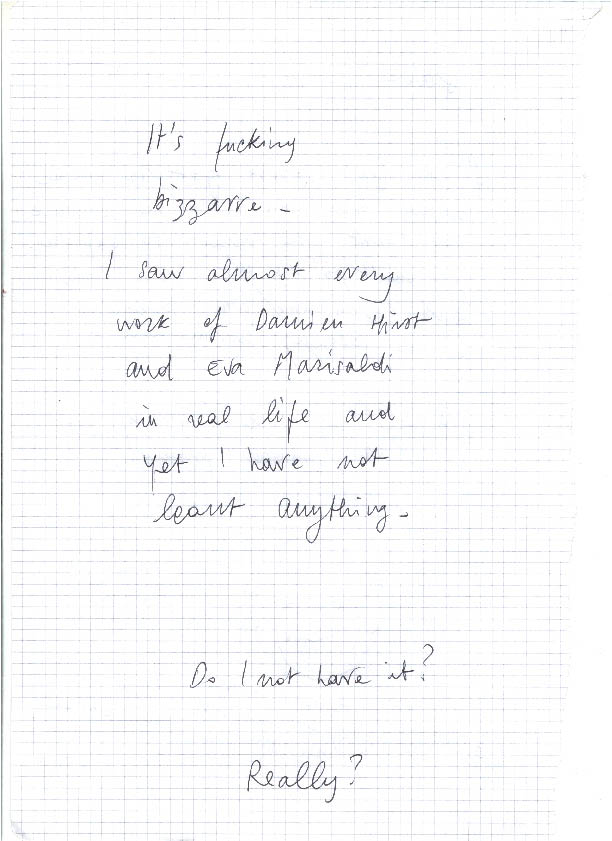 It's fucking
bizzarre -
I saw almost every
work of Damien Hirst
and Eva Marisaldi
in real life and
yet I have not
leant anything -
Do I not have it?
Really?